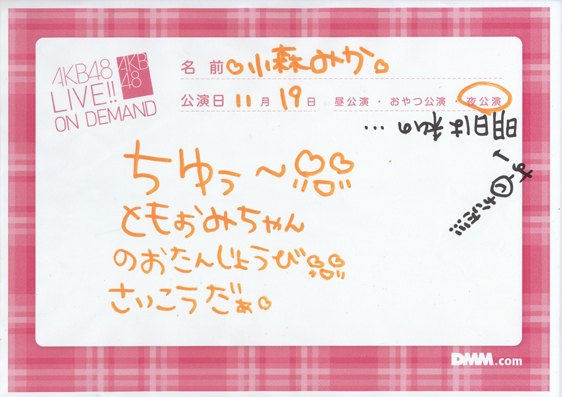 AKB48
LIVE!!
ON DEMAND
AKB
48
名 前 小森みか
公演日 11月 19日 昼公演・おやつ公演・夜公演
明日は私の…
ちゅぅ〜
ともおみちゃん
のおたんじょうび
さいこうだぁ
DMM.com